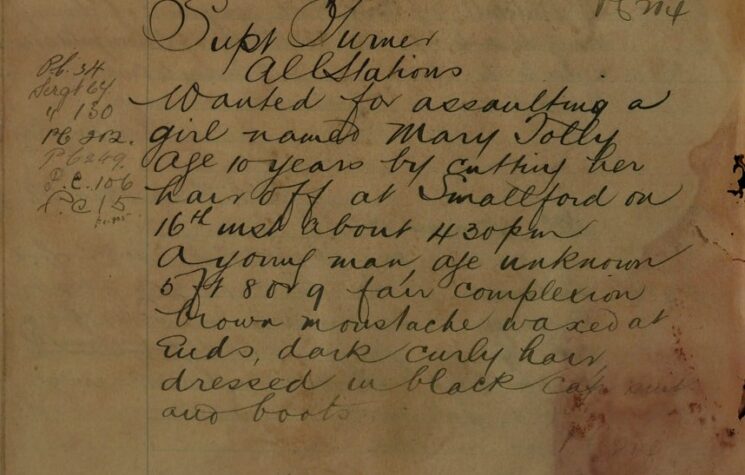 Supt Turner
All Stations
P.C. 34
Sergt 64
" 130
PC 202.
PC 249.
P.C. 106
P.C 15
Wanted for assaulting a
girl named Mary Tolly
age 10 years by cutting her
hair off at Smallford on
16th inst about 4 30 pm
a young man, age unknown
5 ft 8 or 9 fair complexion
brown moustache waxed at
Ends, dark curly hair
dressed in black cap suit
and boots